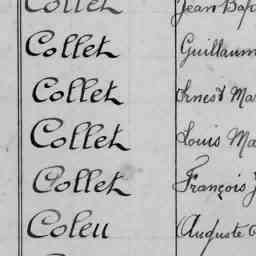 Collet Jean Bap
Collet Guillaum
Collet Ernest Ma
Collet Louis Ma
Collet François J
Coleu Auguste